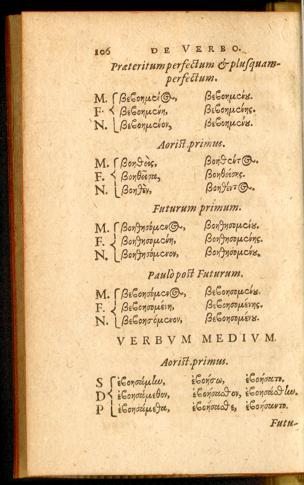 106 DE VERBO.
Præteritum perfectum & plusquam-
perfectum.
M. βεβοημένος, βεβοημένου.
F. βεβοημένη, βεβοημένης.
N. βεβοημένον, βεβοημένου.
Aorist. primus.
M. βοηθεὶς, βοηθέντος.
F. βοηθεῖσα, βοηθείσης.
N. βοηθὲν, βοηθέντος.
Futurum primum.
M. βοηθησόμενος, βοηθησομένου.
F. βοηθησομένη, βοηθησομένης.
N. βοηθησόμενον, βοηθησομένου.
Paulò post Futurum.
M. βεβοησόμενος, βεβοησομένου.
F. βεβοησομένη, βεβοησομένης.
N. βεβοησόμενον, βεβοησομένου.
VERBVM MEDIVM.
Aorist. primus.
S ἐβοησάμην, ἐβοήσω, ἐβοήσατο.
D ἐβοησάμεθον, ἐβοήσασθον, ἐβοησάσθην.
P ἐβοησάμεθα, ἐβοήσασθε, ἐβοήσαντο.
Futu-